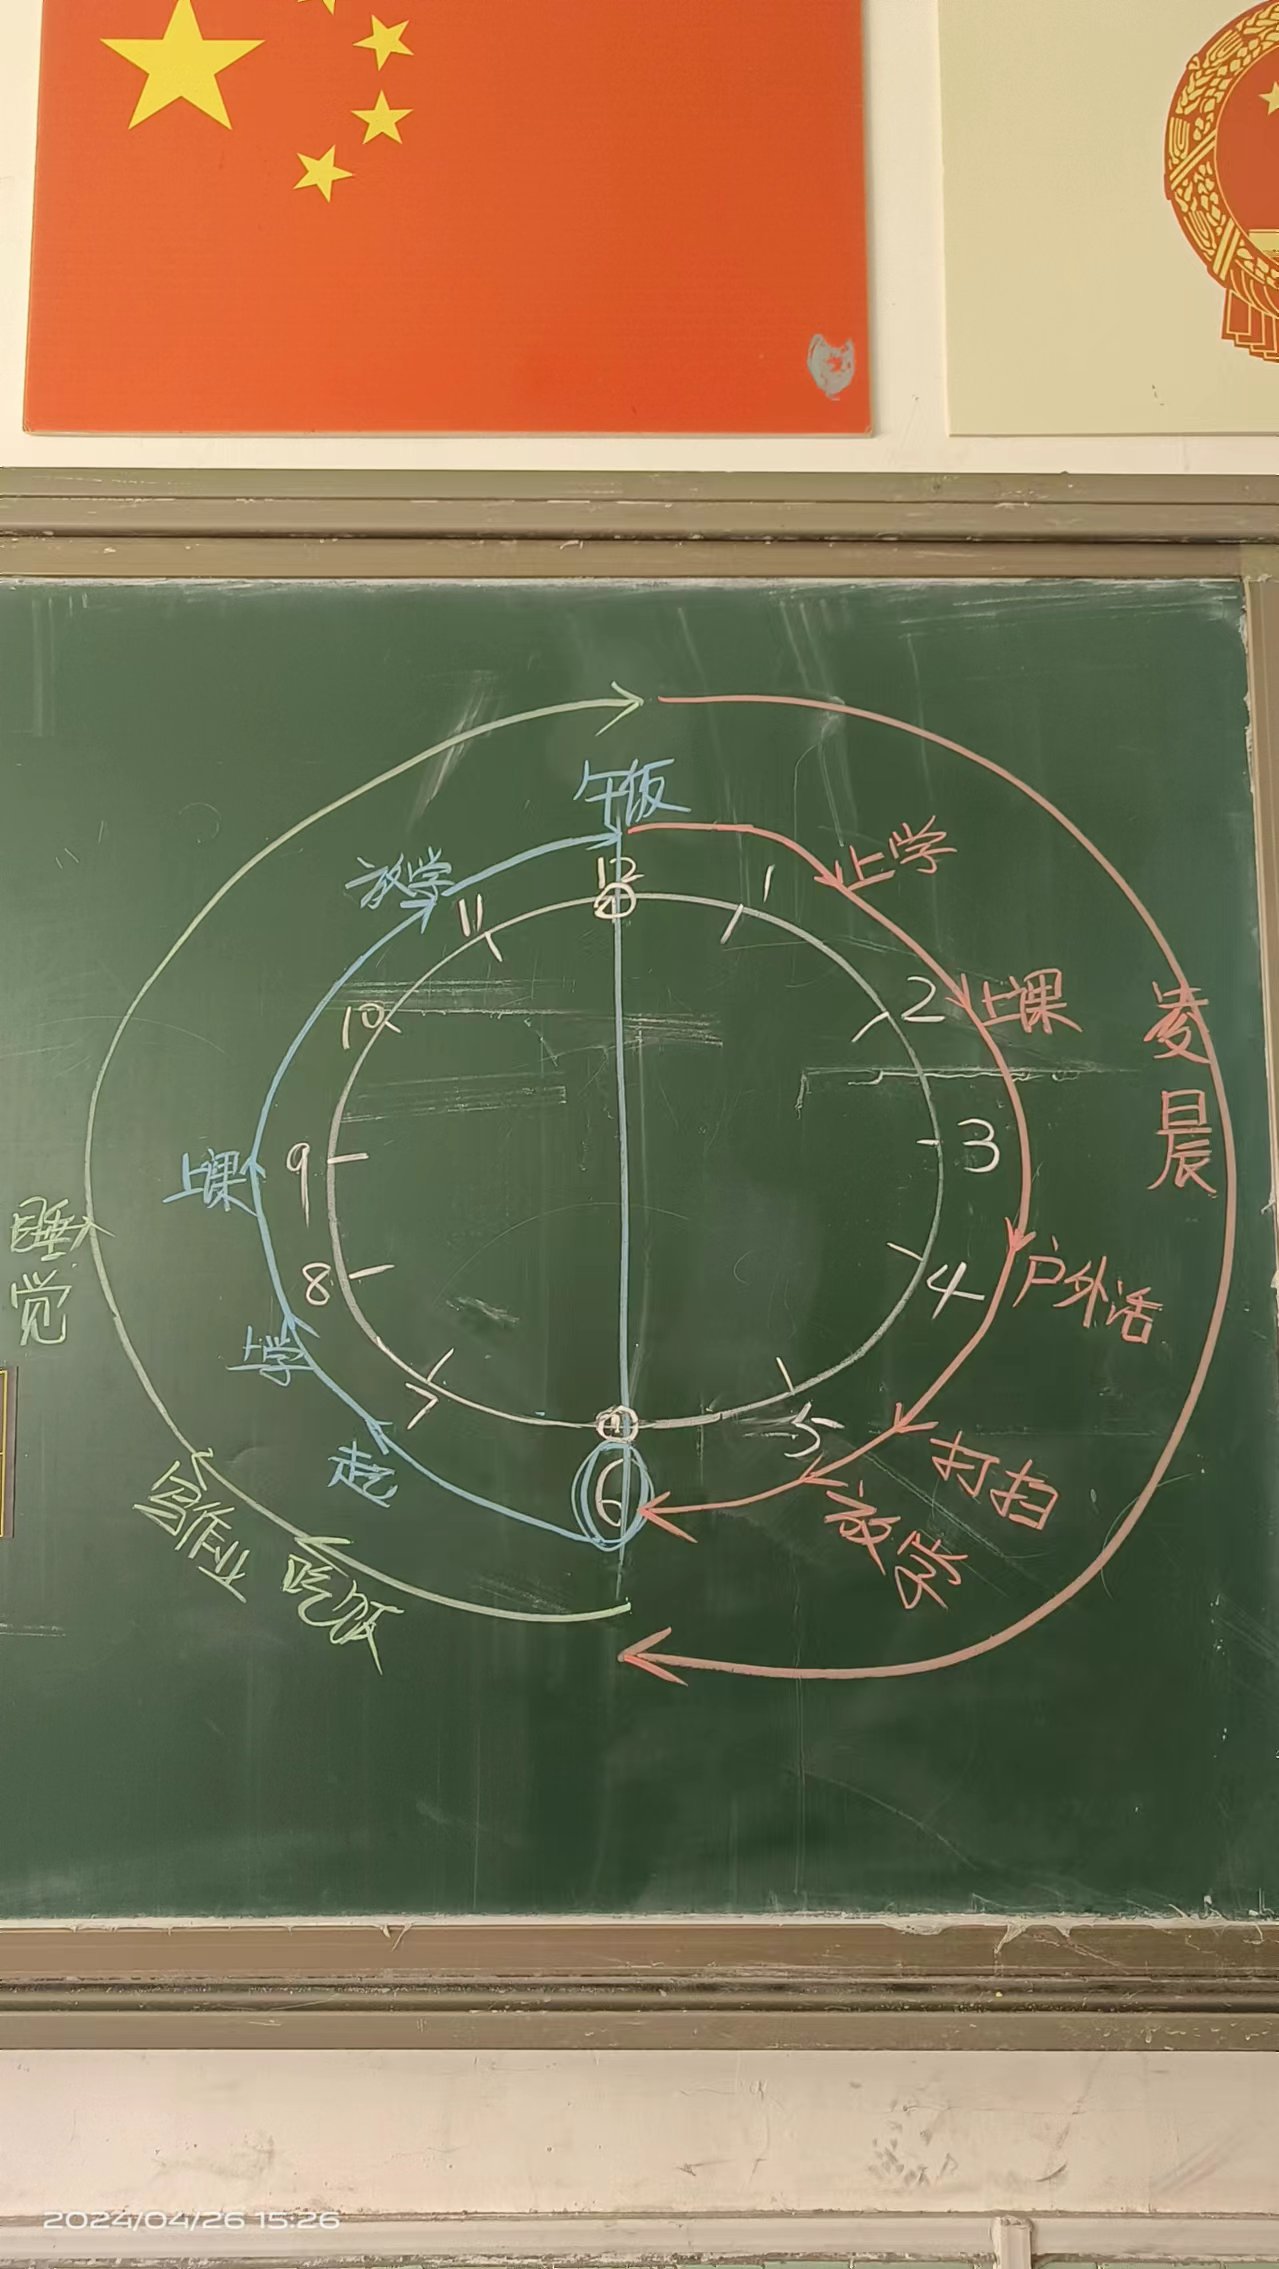 午饭
放学
上学
12
11
1
10
2
上课
凌晨
9
3
上课
睡觉
8
4
户外活
上学
7
5
起
6
打扫
放学
写作业
吃饭
2024/04/26 15:26